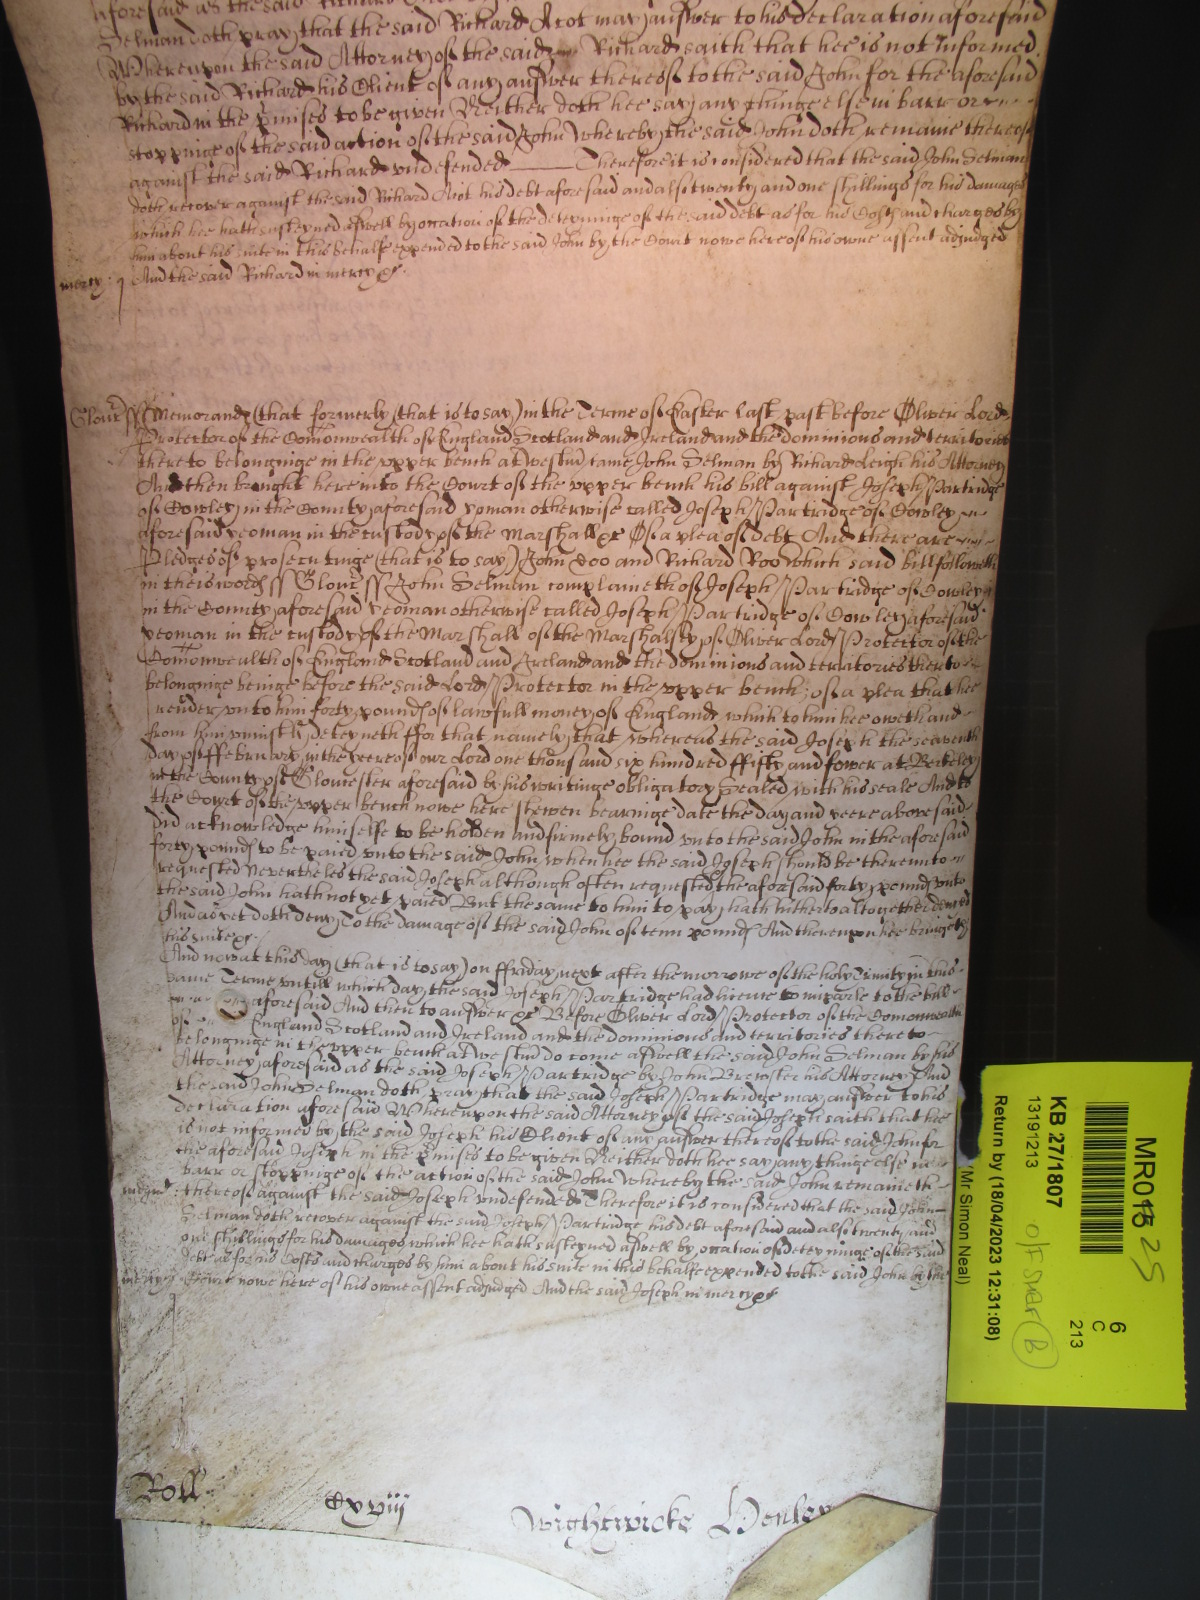 aforesaid as the said Richard
Selman doth pray that the said Richard Acot may answer to his declaration aforesaid
Whereupon the said Attorney of the said Richard saith that hee is not Informed
by the said Richard his Client of any answer thereof to the said John for the aforesaid
Richard in the p'mises to be given Neither doth hee say any thinge else in barr or
stoppinge of the said action of the said John Whereby the said John doth remaine thereof
against the said Richard vndefended Therefore it is considered that the said John Selman
doth recover against the said Richard Acot his debt aforesaid and also twenty and one shillings for his damages
which hee hath susteyned aswell by occation of the deteyninge of the said debt as for his Costs and charges by
him about his suite in this behalfe expended to the said John by the Court nowe here of his owne assent adjudged
mercy : And the said Richard in mercy &c
Glouc' ss Memorand' that formerly (that is to say) in the Terme of Easter last past before Oliver Lord
Protector of the Com'onwealth of England Scotland and Ireland and the dominions and territories
thereto belonginge in the vpper bench at Westm' came John Selman by Richard Leigh his Attorney
And then brought here into the Court of the vpper bench his bill against Joseph Partridge
of Cowley in the County aforesaid yoman otherwise called Joseph Partridge of Cowley
aforesaid yeoman in the custody of the Marshall &c Of a plea of debt And there are
Pledges of prosecutinge (that is to say) John Doo and Richard Roo which said bill followeth
in theis words ss Glouc' ss John Selman complaineth of Joseph Partridge of Cowley
in the County aforesaid yeoman otherwise called Joseph Partridge of Cowley aforesaid
yeoman in the custody of the Marshall of the Marshalsey of Oliver Lord Protector of the
Com'onwealth of England Scotland and Ireland and the dominions and terratories thereto
belonginge beinge before the said Lord Protector in the vpper bench: of a plea that hee
render vnto him forty pounds of lawfull money of England which to him hee oweth and
from him vniustly deteyneth ffor that namely that whereas the said Joseph the seaventh
day of ffebruary in the yeere of our Lord one thousand six hundred ffifty and fower at Berkeley
in the County of Gloucester aforesaid by his writinge obligatory Sealed with his seale And to
the Court of the vpper bench nowe here shewen bearinge date the day and yeere abovesaid
did acknowledge himselfe to be holden and firmely bound vnto the said John in the aforesaid
forty pounds to be paied vnto the said John when hee the said Joseph should be thereunto
requested Neverthelss the said Joseph although often requested the aforesaid forty pounds vnto
the said John hath not yet paied But the same to him to pay hath hitherto altogether denied
And as yet doth deny To the damage of the said John of tenn pounds And thereupon hee bringeth
his suite &c
And now at this day (that is to say) on ffriday next after the morrowe of the holy Trinity in this
same Terme vntill which day the said Joseph Partridge had licence to imparle to the bill
aforesaid And then to answer &c Before Oliver Lord Protector of the Comonwealth
of England Scotland and Ireland and the dominions and territories thereto
belonginge in the vpper bench at Westm' do come aswell the said John Selman by his
Attorney aforesaid as the said Joseph Partridge by John Brewster his Attorney And
the said John Selman doth pray that the said Joseph Partridge may answer to his
declaration aforesaid Whereupon the said Attorney of the said Joseph saith that hee
is not informed by the said Joseph his Client of any answer thereof to the said John for
the aforesaid Joseph in the p'mises to be given Neither doth hee say any thinge else in
barr or stoppinge of the action of the said John Whereby the said John remaineth
thereof against the said Joseph vndefended Therefore it is considered that the said John
Selman doth recover against the said Joseph Partridge his debt aforesaid and also twenty and
one shillings for his damages which hee hath susteyned aswell by occation of deteyninge of the said
debt as for his Costs and charges by him about his suite in this behalfe expended to the said John by the
mercy Court nowe here of his owne assent adjudged And the said Joseph in mercy &c
Roll
Cxviij
Wightwicke Henley
MR01 25
6
C
213
KB 27/1807
13191213
O/F Snar B
Return by (18/04/2023 12:31:08)
(Mr Simon Neal)